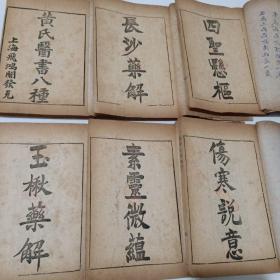 黄氏醫書八種
上海飛鴻閣發兌
長沙藥解
四聖懸樞
玉楸藥解
素靈微蘊
傷寒說意